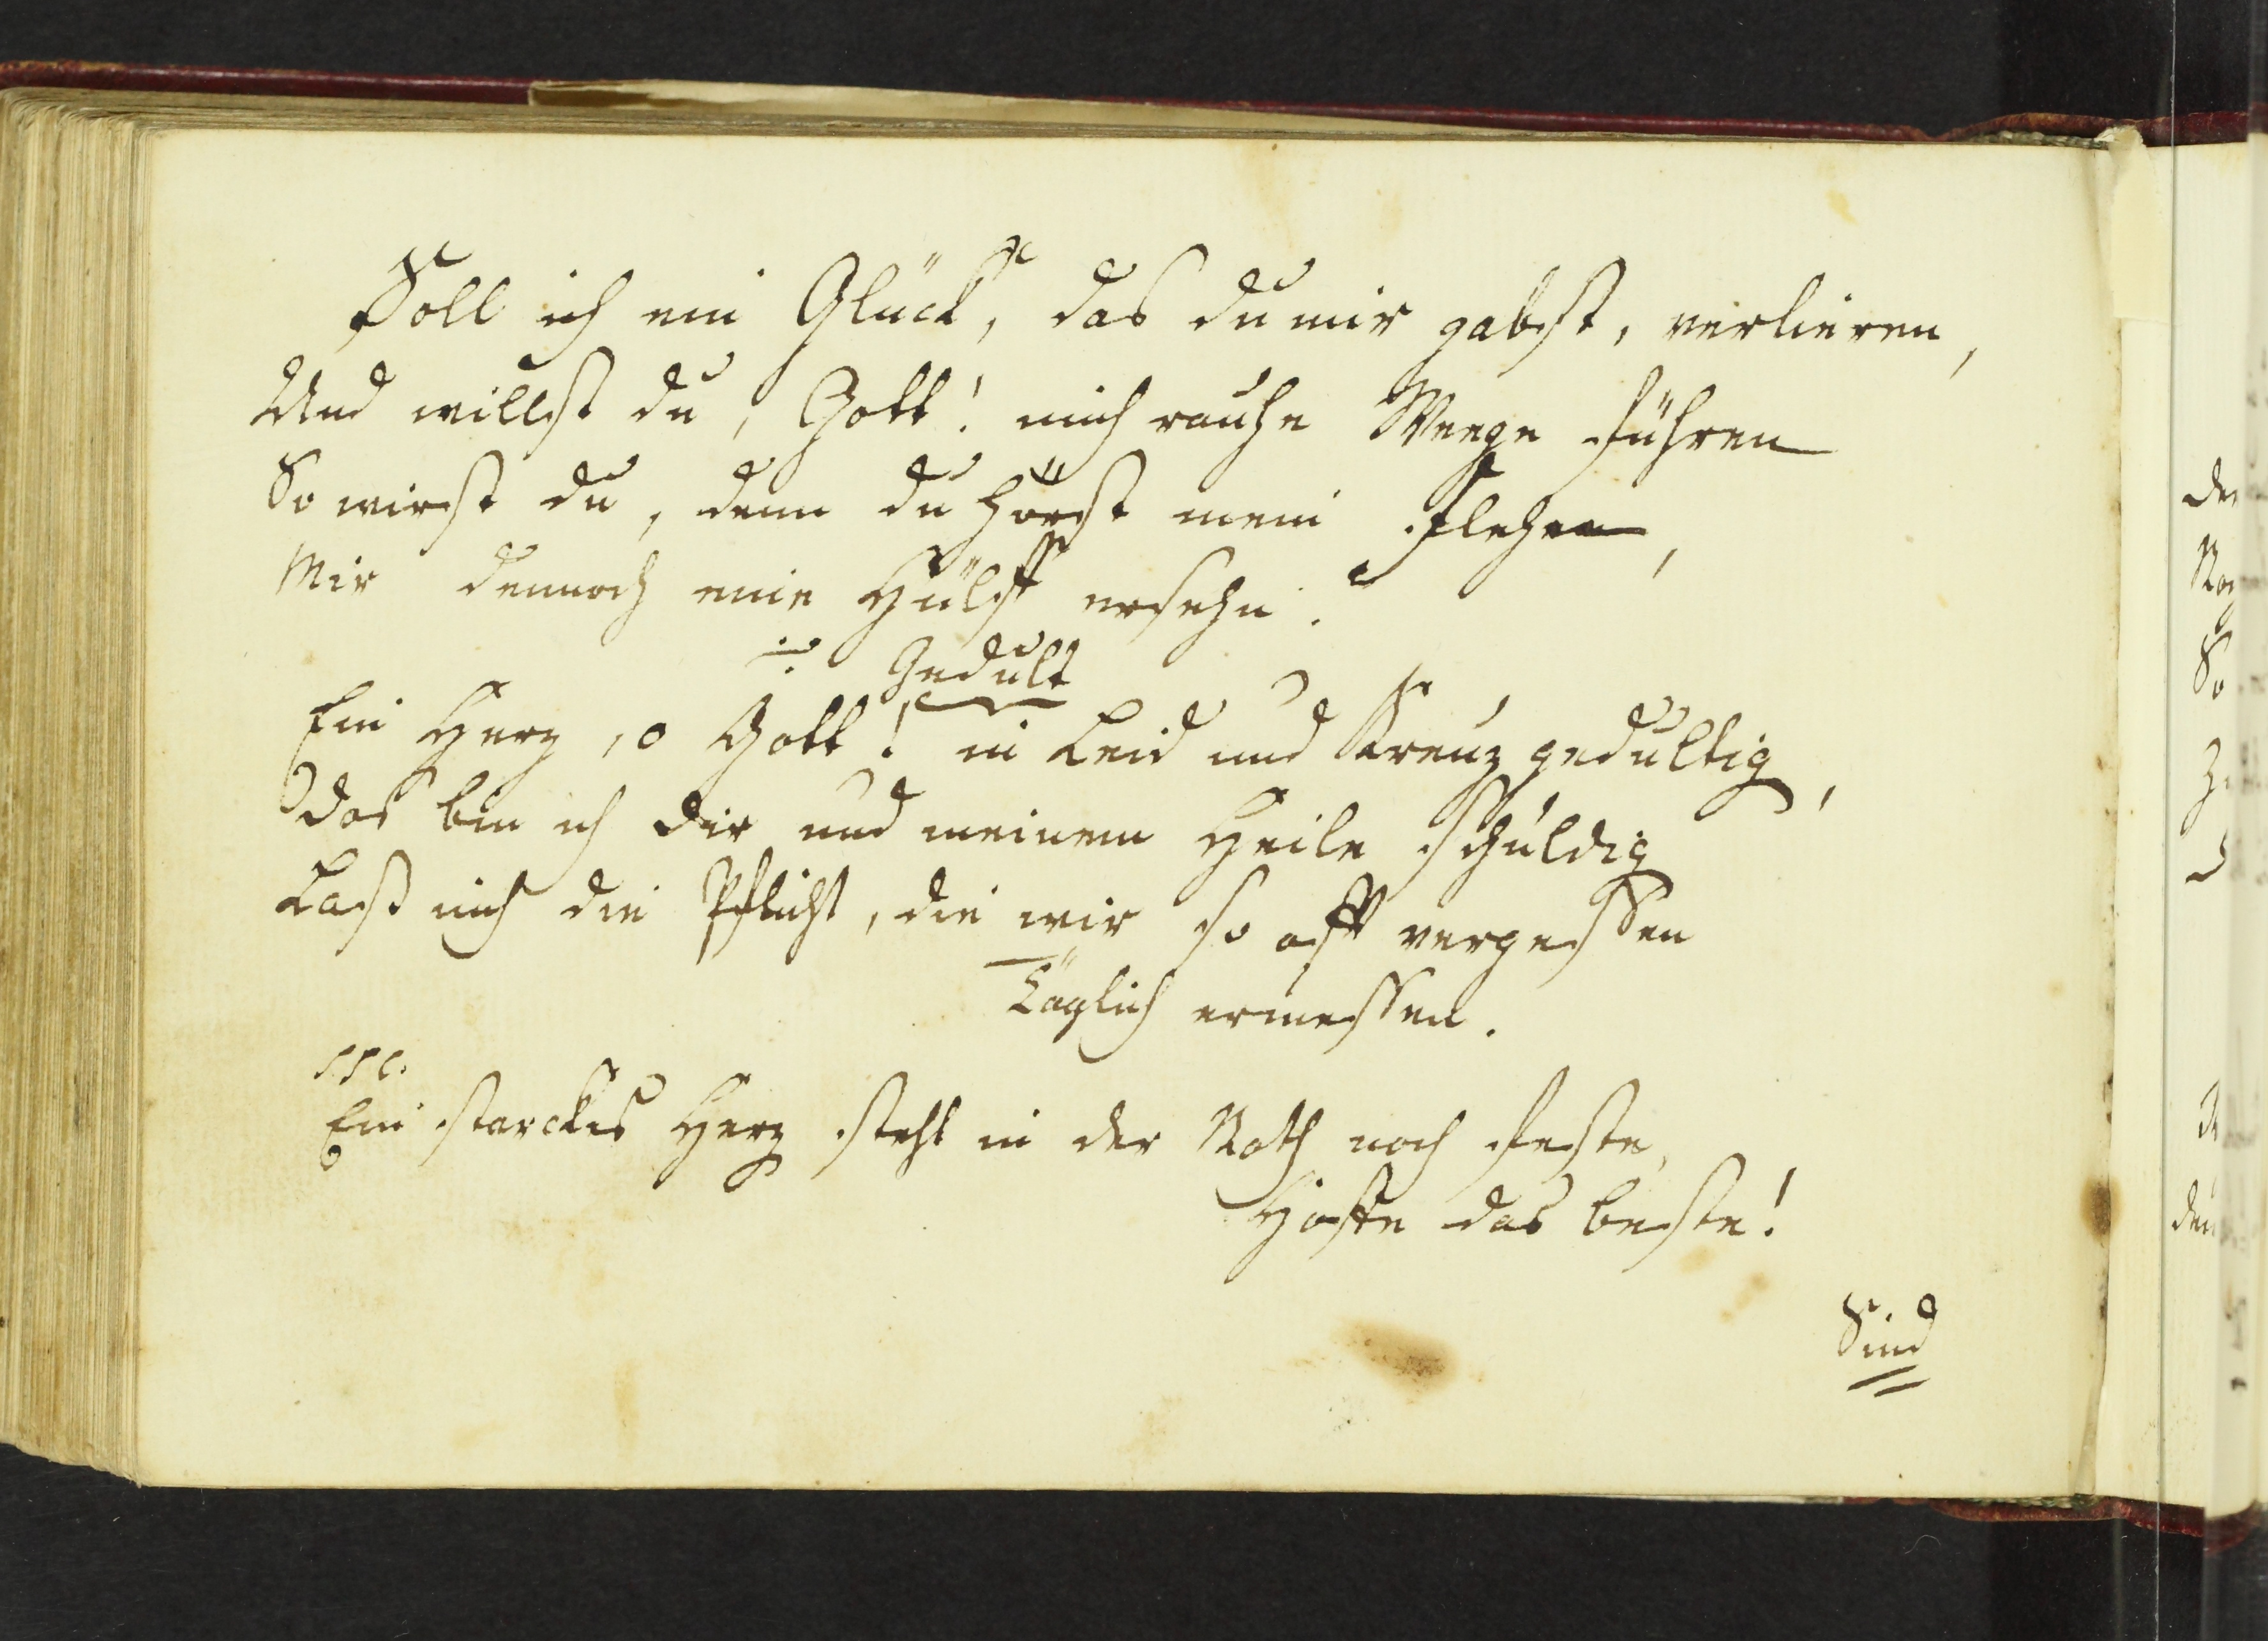 Soll ich ein Glück, das du mir gabst, verlieren,
Und willst du, Gott! mich rauhe Weege führen
So wirst du, denn du hörst mein Flehen,
Mir dennoch eine Hülff ersehn.
Gedult
Ein Herz, o Gott! in Leid und Kreuz gedultig,
das bin ich dir und meinem Heile schuldig
Laß mich die Pflicht, die wir so offt vergessen
Täglich ermessen.
Ein starckes Herz steht in der Noth noch feste,
Hoffe das beste!
Sind
den
Noch
So